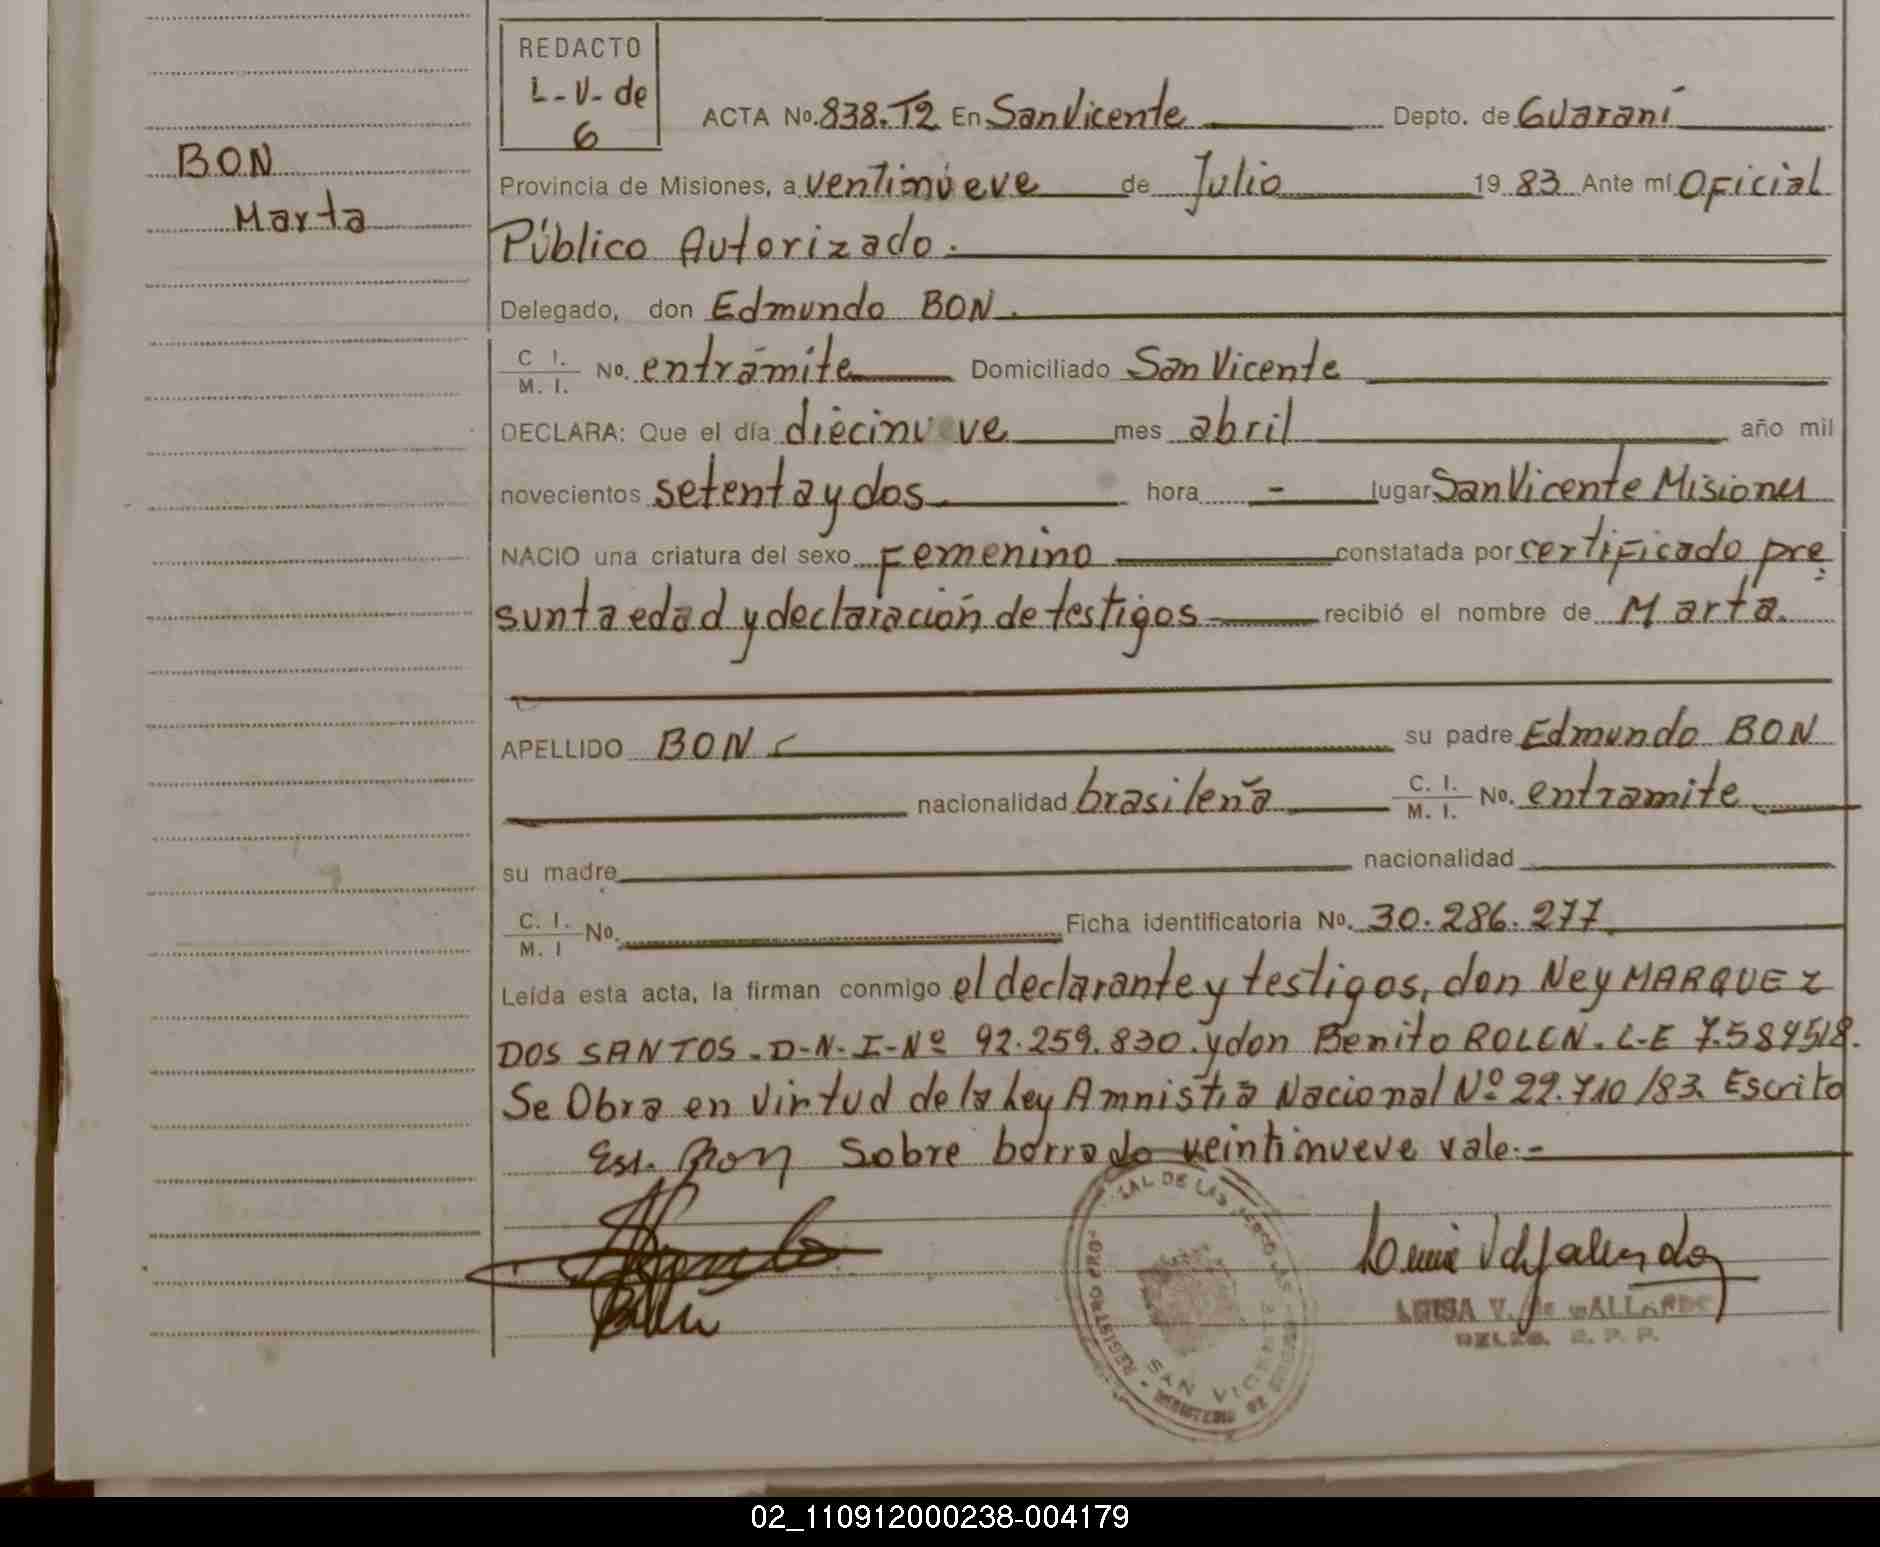 REDACTO
L-V-de
G
ACTA No. 838. T2 En San Vicente Depto. de Guaraní
BON
Marta
Provincia de Misiones, a ventinueve de Julio 19 83 Ante mí Oficial
Público Autorizado.
Delegado, don Edmundo BON.
C I. / M. I. No. entrámite Domiciliado San Vicente
DECLARA: Que el día diecinueve mes abril año mil
novecientos setenta y dos hora - lugar San Vicente Misiones
NACIO una criatura del sexo Femenino constatada por certificado pre
sunta edad y declaración de testigos recibió el nombre de Marta.
APELLIDO BON su padre Edmundo BON
nacionalidad brasileña C. I. / M. I. No. entramite
su madre nacionalidad
C. I. / M. I No. Ficha identificatoria No. 30.286.277
Leída esta acta, la firman conmigo el declarante y testigos, don Ney MARQUEZ
DOS SANTOS. D-N-I-Nº 92.259.830. y don Benito ROLON. L-E 7.584518.
Se Obra en virtud de la Ley Amnistia Nacional Nº 22.710/83. Escrito
Sobre borrado veintinueve vale.-
REGISTRO
SAN VICENTE
LUISA V. de GALLARDO
02_110912000238-004179